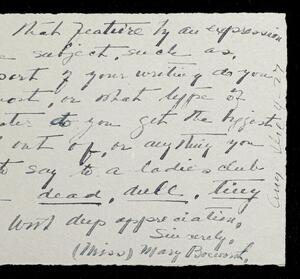 that feature by an expression
subject, such as,
part of your writing do you
most, or what type of
do you get the biggest
out of, or anything you
to say to a ladies club
dead, dull, tiny
With deep appreciation,
Sincerely,
(Miss) Mary